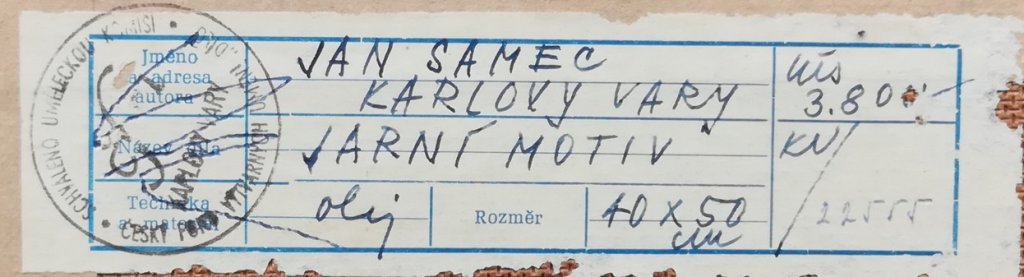 Jméno
a adresa
autora
JAN SAMEC
KARLOVY VARY
Kčs
3.800
Název díla
JARNÍ MOTIV
KV/
Technika
a materiál
olej
Rozměr
40 X 50
cm
22555
SCHVÁLENO UMĚLECKOU KOMISÍ
ČESKÝ FOND VÝTVARNÝCH UMĚNÍ
KARLOVY VARY